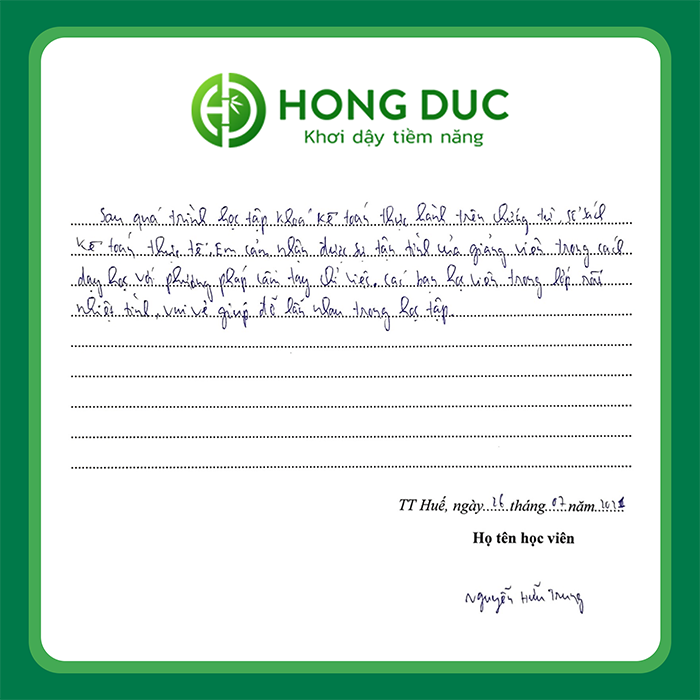 HONG DUC
Khơi dậy tiềm năng
Sau quá trình học tập khoá kế toán thực hành trên chứng từ, sổ sách
kế toán thực tế. Em cảm nhận được sự tận tình của giảng viên trong cách
dạy học với phương pháp cầm tay chỉ việc, các bạn học viên trong lớp rất
nhiệt tình, vui vẻ giúp đỡ lẫn nhau trong học tập.
TT Huế, ngày 26 tháng 07 năm 2021
Họ tên học viên
Nguyễn Hữu Trung